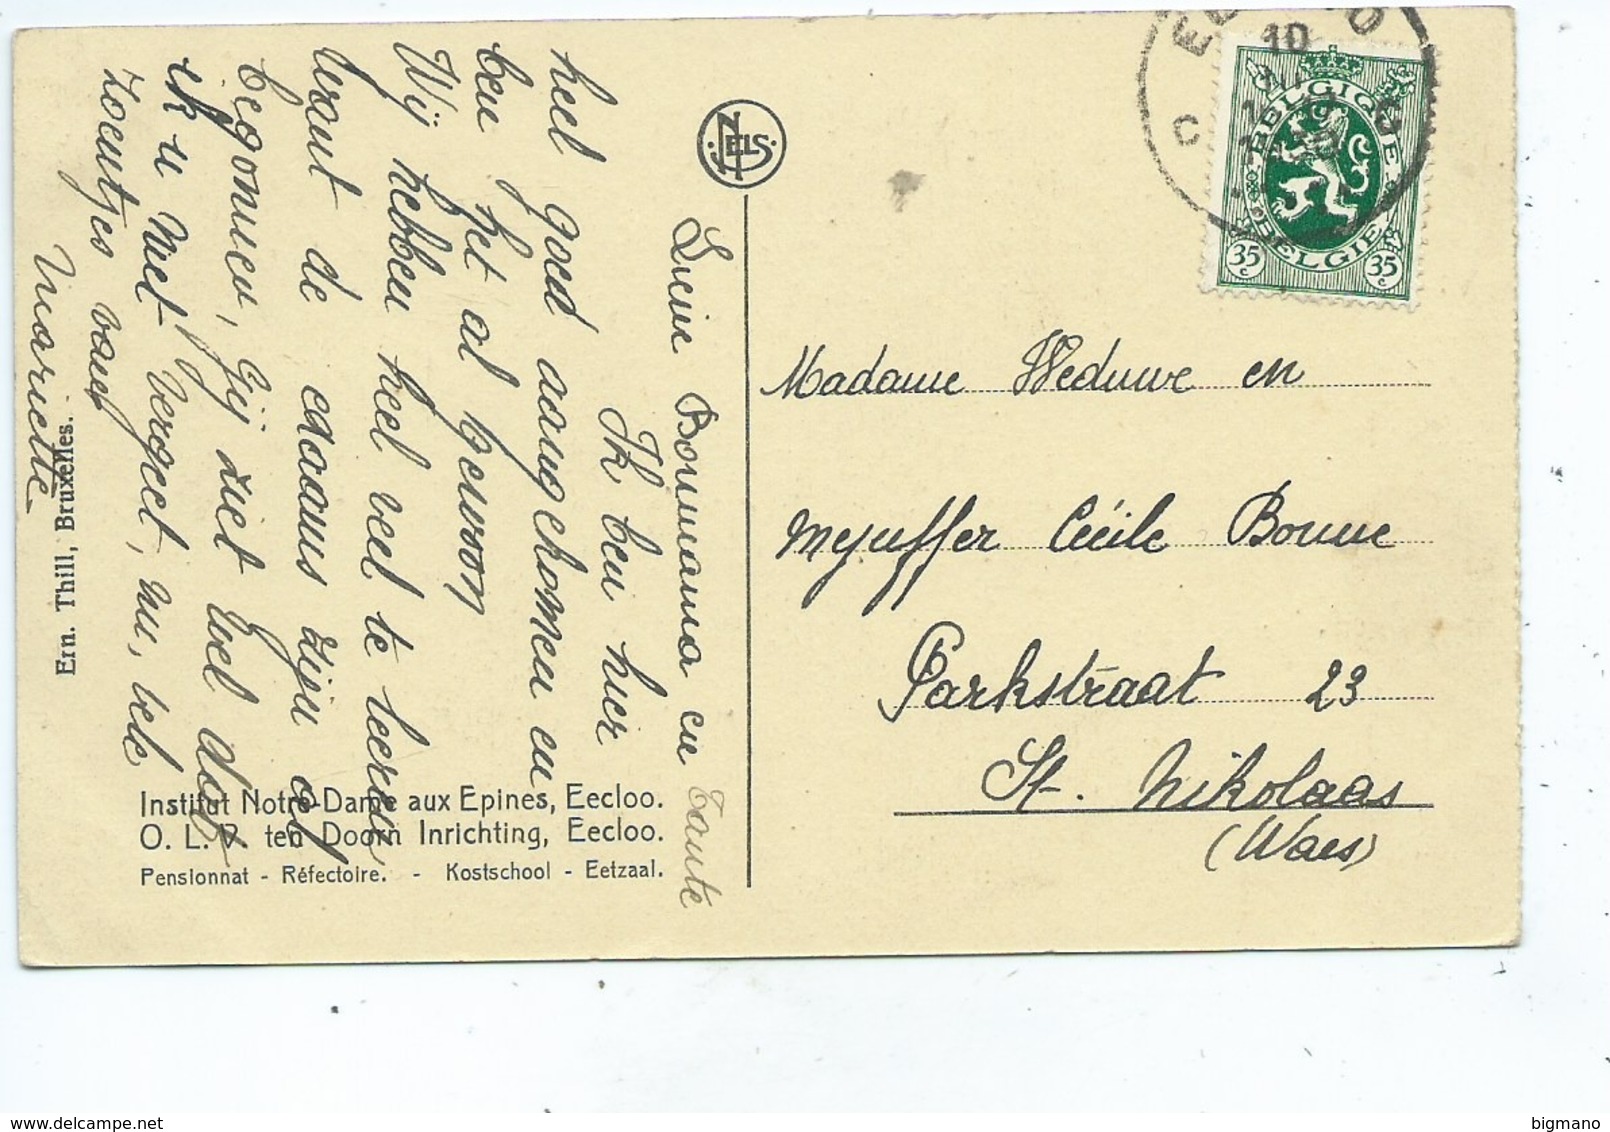 Lieve Bonmama en Tante
Ik ben hier
heel goed aangekomen en
ben het al gewoon
Wij hebben heel veel te leeren
want de edaams zijn al
begonnen, Gij ziet wel dat
ik u niet vergeet, nu, vele
zoentjes van
Mariette
Ern. Thill, Bruxelles.
Institut Notre-Dame aux Epines, Eecloo.
O. L. V. ten Doorn Inrichting, Eecloo.
Pensionnat - Réfectoire. - Kostschool - Eetzaal.
NELS
10
BELGIQUE
BELGIE
35 c
35 c
Madame Weduwe en
Mejuffer Cécile Bonne
Parkstraat 23
St. Nikolaas
(Waes)
bigmano